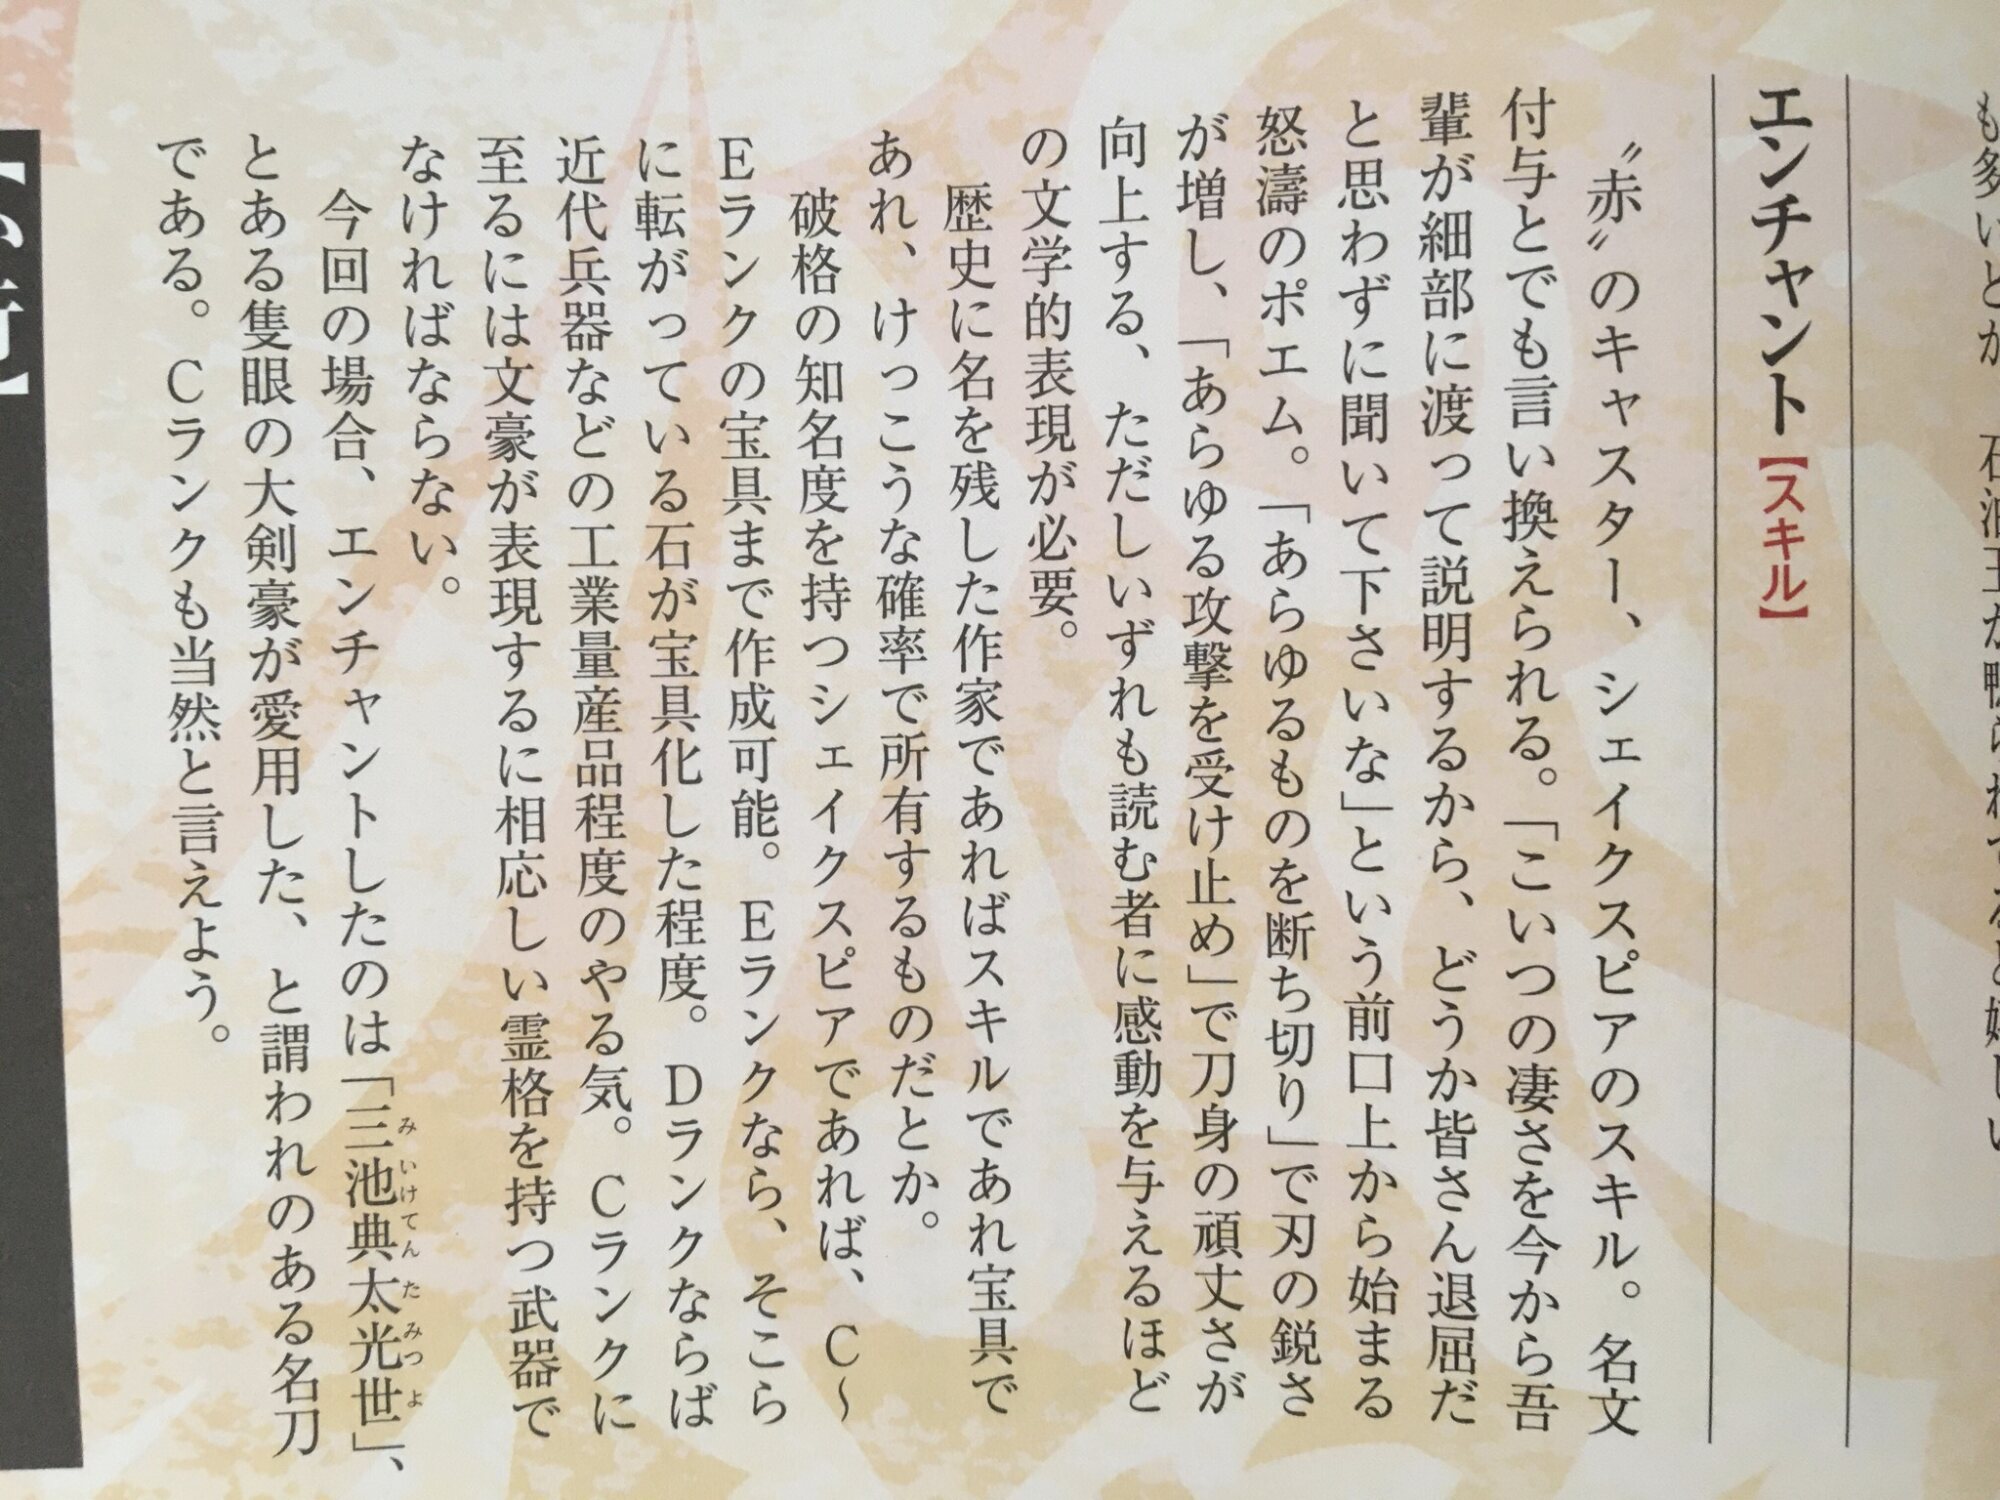 も多いとか
エンチャント【スキル】
〝赤〟のキャスター、シェイクスピアのスキル。名文
付与とでも言い換えられる。「こいつの凄さを今から吾
輩が細部に渡って説明するから、どうか皆さん退屈だ
と思わずに聞いて下さいな」という前口上から始まる
怒濤のポエム。「あらゆるものを断ち切り」で刃の鋭さ
が増し、「あらゆる攻撃を受け止め」で刀身の頑丈さが
向上する、ただしいずれも読む者に感動を与えるほど
の文学的表現が必要。
歴史に名を残した作家であればスキルであれ宝具で
あれ、けっこうな確率で所有するものだとか。
破格の知名度を持つシェイクスピアであれば、C～
Eランクの宝具まで作成可能。Eランクなら、そこら
に転がっている石が宝具化した程度。Dランクならば
近代兵器などの工業量産品程度のやる気。Cランクに
至るには文豪が表現するに相応しい霊格を持つ武器で
なければならない。
今回の場合、エンチャントしたのは「三池典太光世」、
みいけてんたみつよ
とある隻眼の大剣豪が愛用した、と謂われのある名刀
である。Cランクも当然と言えよう。